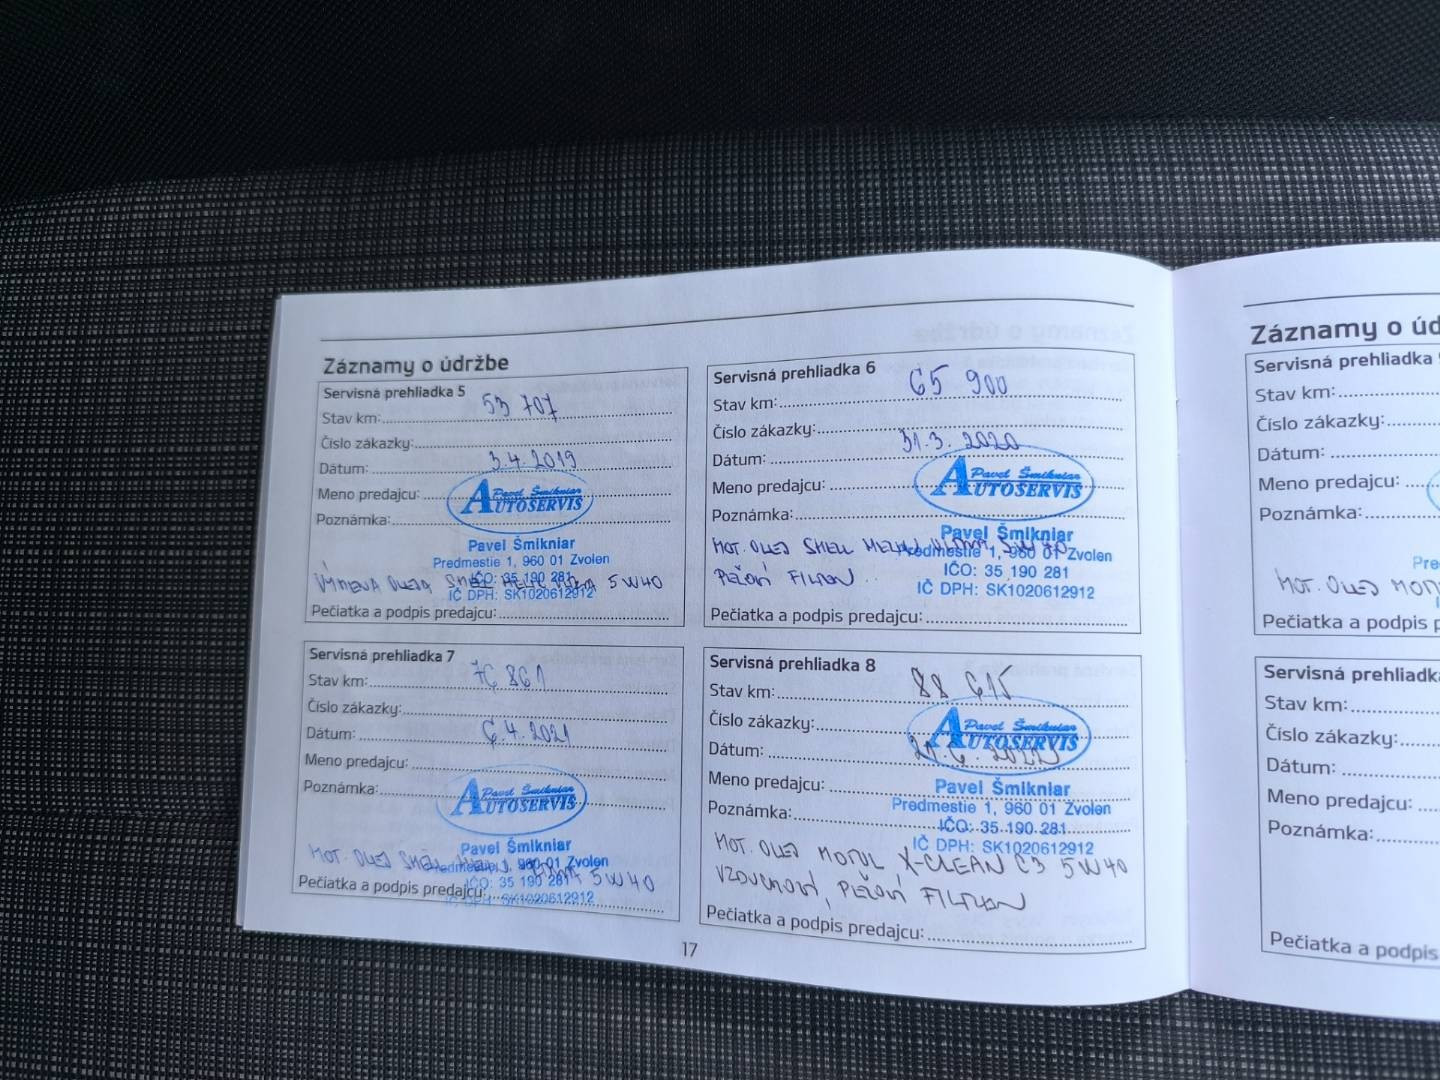 Záznamy o údržbe
Servisná prehliadka 5
Stav km: 53 707
Číslo zákazky:
Dátum: 3.4.2019
Meno predajcu:
Poznámka:
Pavel Šmikniar
AUTOSERVIS
Pavel Šmikniar
Predmestie 1, 960 01 Zvolen
IČO: 35 190 281
IČ DPH: SK1020612912
VÝMENA OLEJA SHELL HELIX ULTRA 5W40
Pečiatka a podpis predajcu:
Servisná prehliadka 6
Stav km: 65 900
Číslo zákazky:
Dátum: 31.3.2020
Meno predajcu:
Poznámka:
Pavel Šmikniar
AUTOSERVIS
Pavel Šmikniar
Predmestie 1, 960 01 Zvolen
IČO: 35 190 281
IČ DPH: SK1020612912
MOT. OLEJ SHELL HELIX ULTRA 5W40
PEĽOVÝ FILTER
Pečiatka a podpis predajcu:
Servisná prehliadka 7
Stav km: 76 861
Číslo zákazky:
Dátum: 6.4.2021
Meno predajcu:
Poznámka:
Pavel Šmikniar
AUTOSERVIS
Pavel Šmikniar
Predmestie 1, 960 01 Zvolen
IČO: 35 190 281
IČ DPH: SK1020612912
MOT. OLEJ SHELL HELIX ULTRA 5W40
Pečiatka a podpis predajcu:
Servisná prehliadka 8
Stav km: 88 615
Číslo zákazky:
Dátum: 2022
Meno predajcu:
Poznámka:
Pavel Šmikniar
AUTOSERVIS
Pavel Šmikniar
Predmestie 1, 960 01 Zvolen
IČO: 35 190 281
IČ DPH: SK1020612912
MOT. OLEJ MOTUL X-CLEAN C3 5W40
VZDUCHOVÝ, PEĽOVÝ FILTER
Pečiatka a podpis predajcu:
17
Záznamy o úd
Servisná prehliadka
Stav km:
Číslo zákazky:
Dátum:
Meno predajcu:
Poznámka:
Pre
MOT. OLEJ MOTU
Pečiatka a podpis p
Servisná prehliadka
Stav km:
Číslo zákazky:
Dátum:
Meno predajcu:
Poznámka:
Pečiatka a podpis